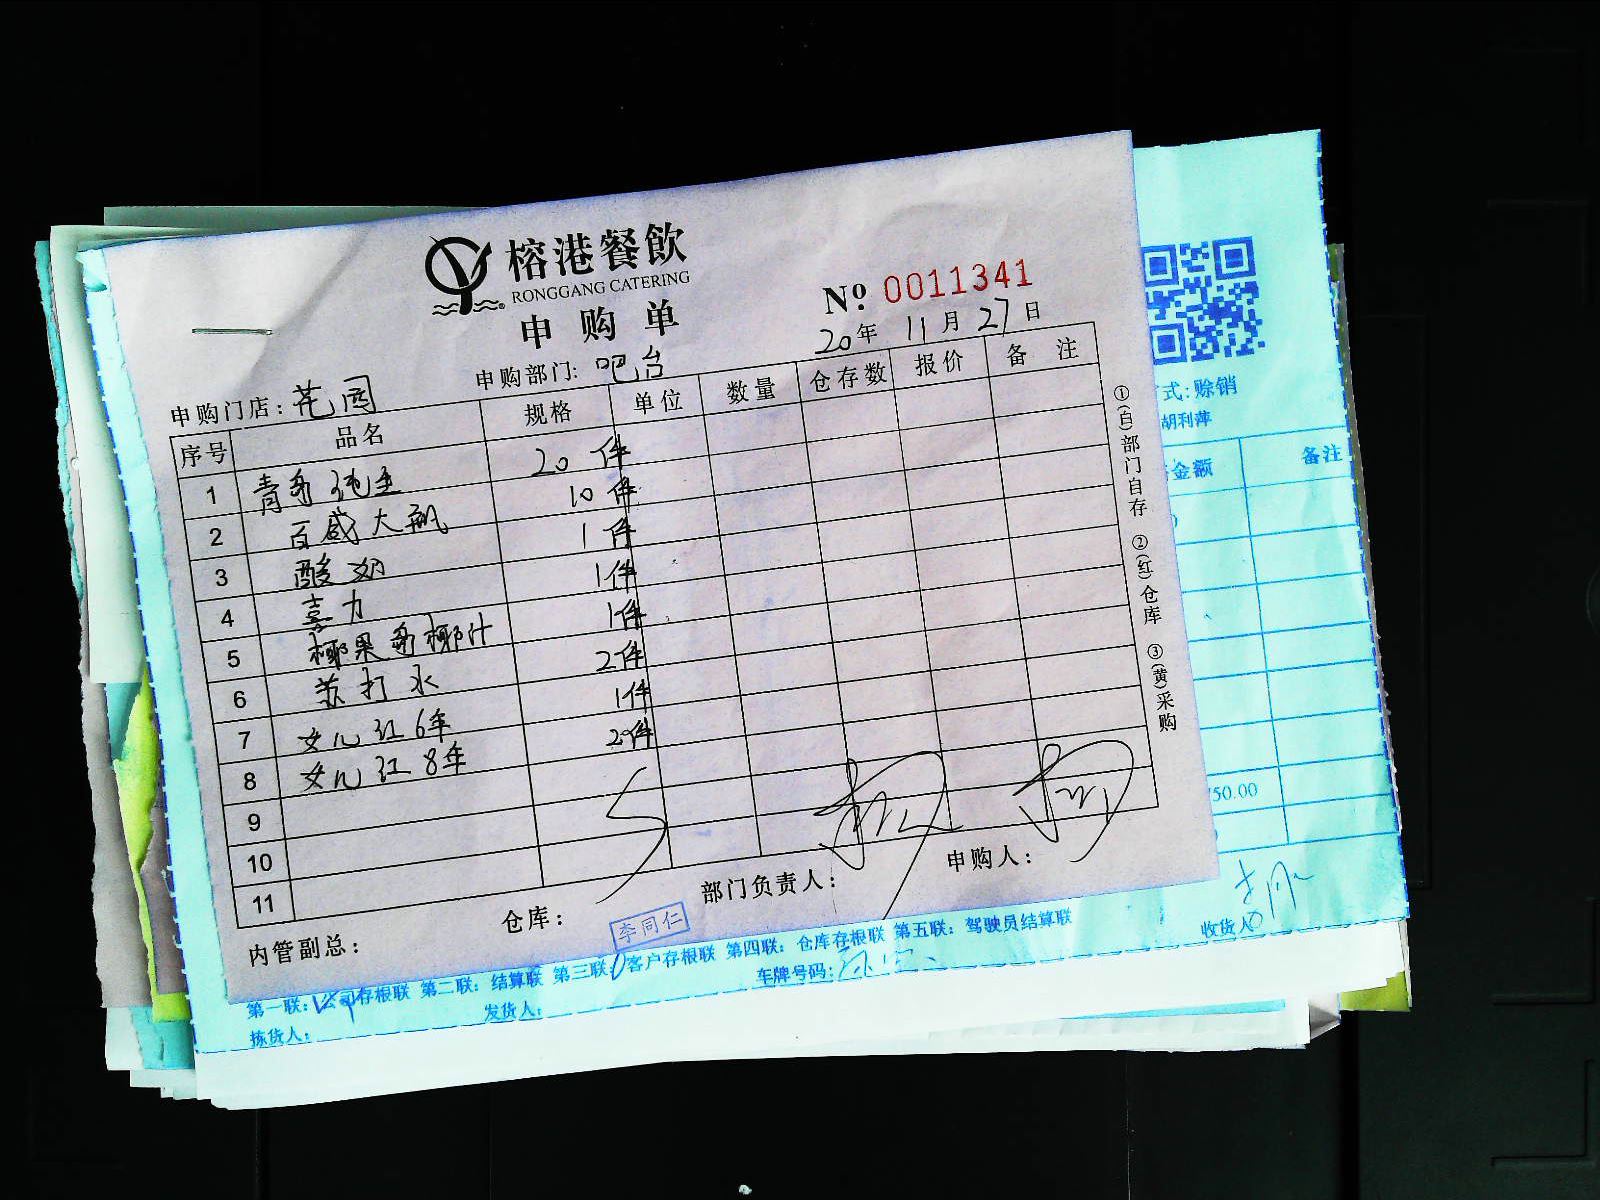 榕港餐飲
RONGGANG CATERING
申购单
№ 0011341
20年 11月 27日
申购门店：花园 申购部门：吧台
序号 品名 规格 单位 数量 仓存数 报价 备注
1 青岛纯生 20 件
2 百威大瓶 10 件
3 酸奶 1件
4 喜力 1件
5 椰果多椰汁 1件
6 苏打水 2件
7 女儿红6年 1件
8 女儿红8年 2件
9
10
11
内管副总： 仓库： 部门负责人： 申购人：
①(白)部门自存 ②(红)仓库 ③(黄)采购
李同仁
式：赊销
胡利萍
金额 备注
50.00
收货人
第一联：公司存根联 第二联：结算联 第三联：客户存根联 第四联：仓库存根联 第五联：驾驶员结算联
拣货人： 发货人： 车牌号码：